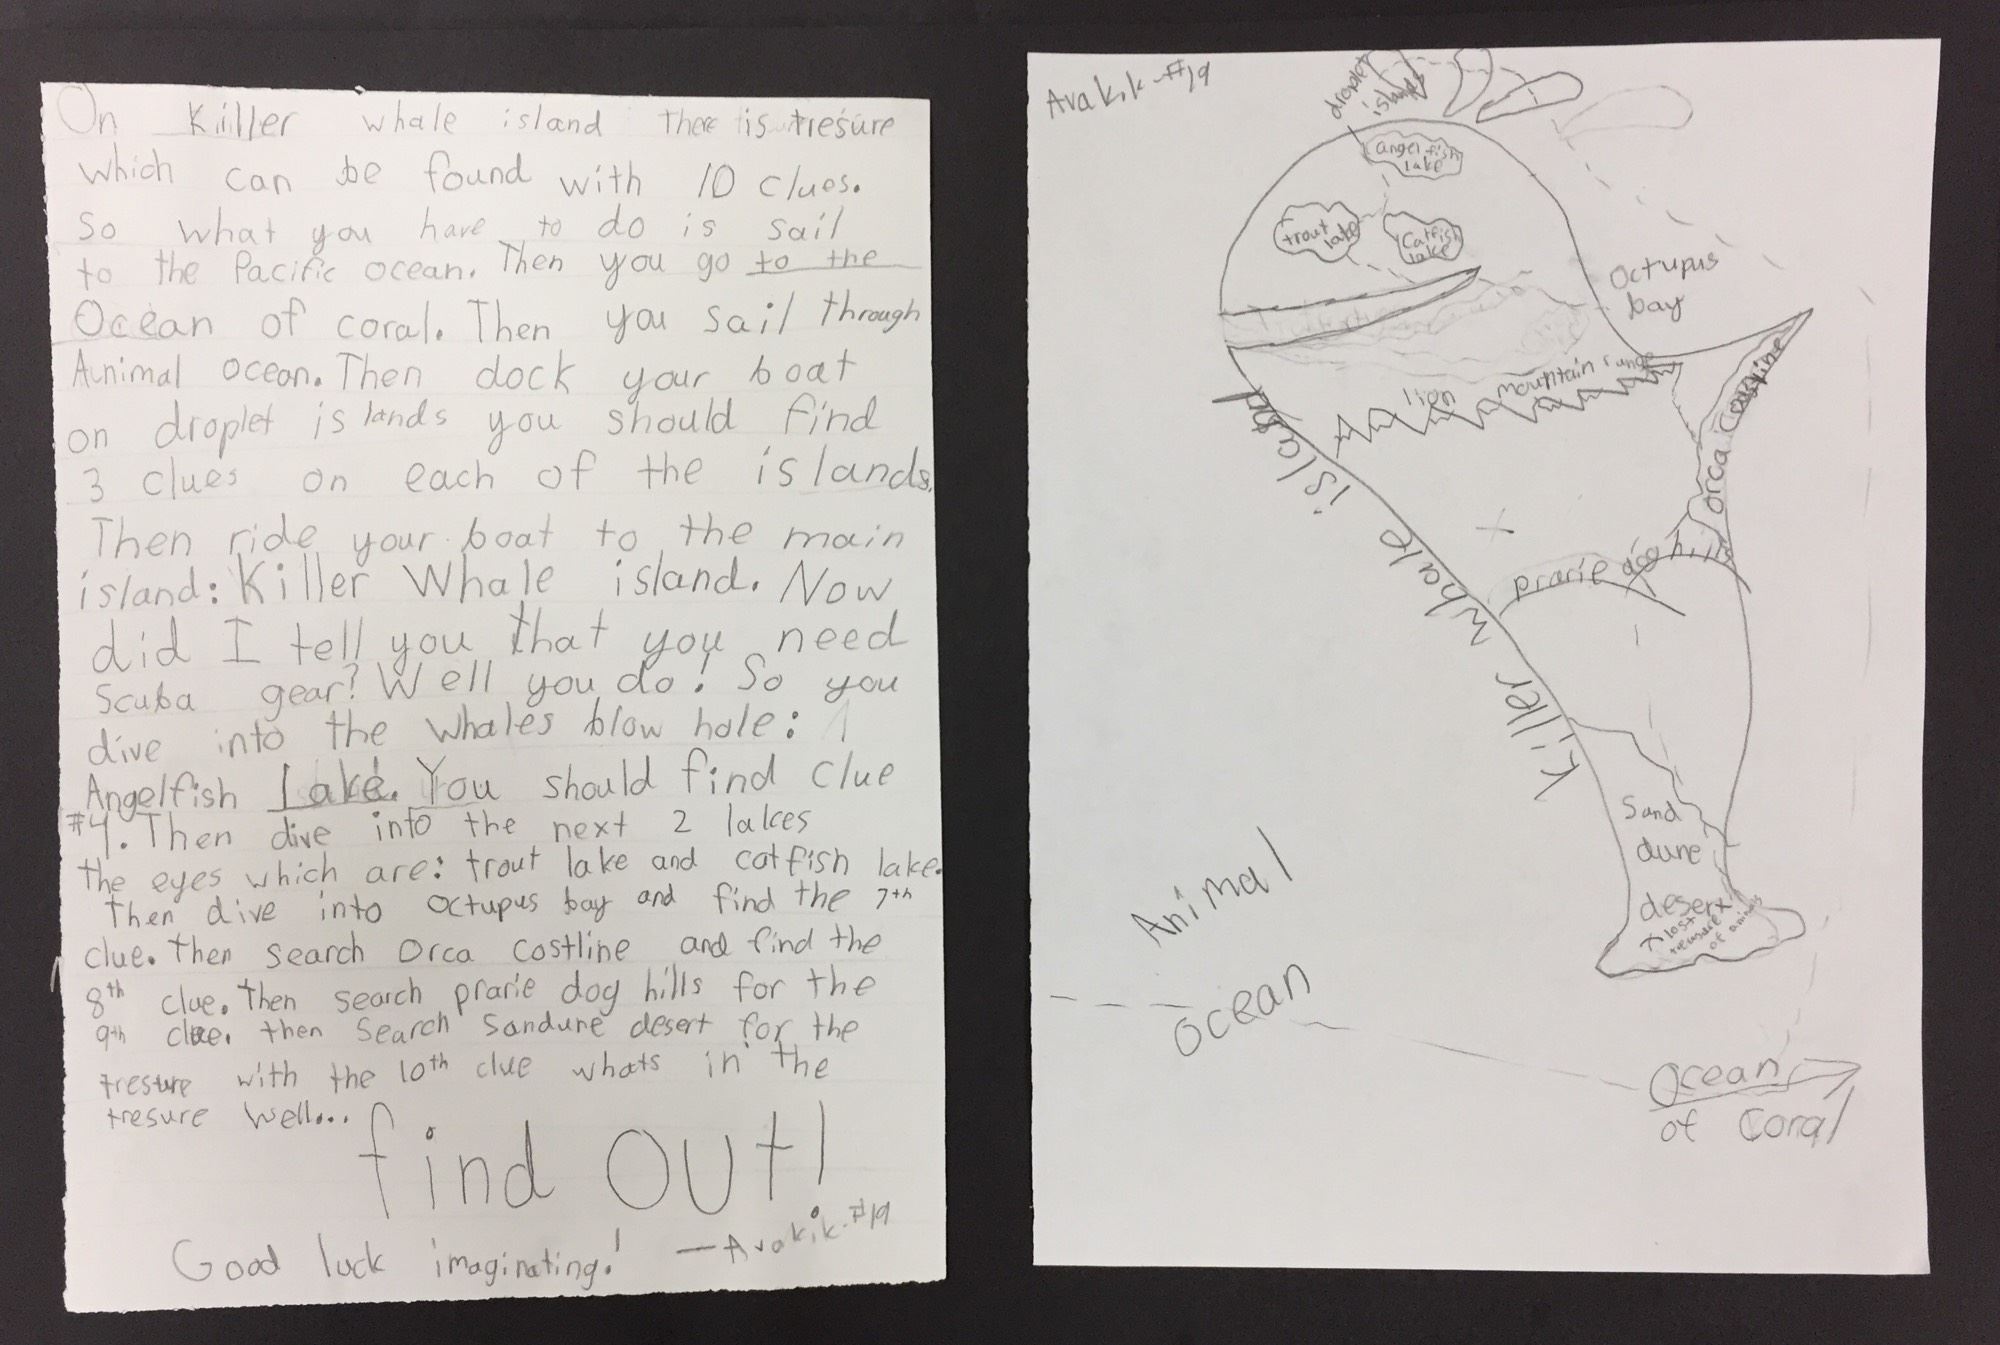 On Killer whale island there is tresure
which can be found with 10 clues.
So what you have to do is sail
to the Pacific ocean. Then you go to the
Ocean of coral. Then you sail through
Animal ocean. Then dock your boat
on droplet islands you should find
3 clues on each of the islands.
Then ride your boat to the main
island: Killer Whale island. Now
did I tell you that you need
Scuba gear? Well you do! So you
dive into the whales blow hole:
Angelfish Lake. You should find clue
#4. Then dive into the next 2 lakes
the eyes which are: trout lake and catfish lake.
Then dive into octupus bay and find the 7th
clue. Then search Orca costline and find the
8th clue. Then search prarie dog hills for the
9th clue. then search Sandune desert for the
tresure with the 10th clue whats in the
tresure well...
find OUT!
Good luck imaginating! — Avakik-#19
Avakik-#19
droplet
islands
angel fish
lake
trout
lake
Catfish
lake
Octupus
bay
lion mountain range
orca coastline
Killer whale island
prarie dog hills
Sand
dune
desert
X lost
treasure
of animals
Animal
Ocean
Ocean
of Coral